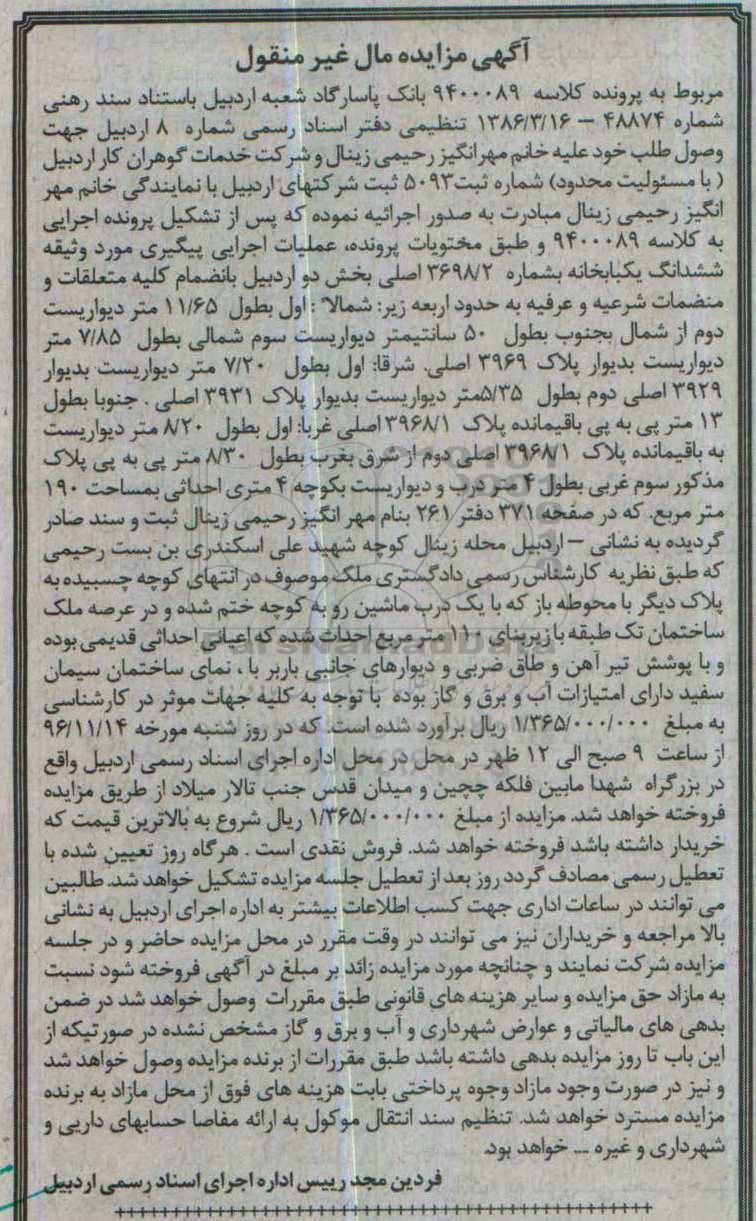 آگهی مزایده مال غیر منقول
مربوط به پرونده کلاسه ۹۴۰۰۰۸۹ بانک پاسارگاد شعبه اردبیل باستناد سند رهنی
شماره ۴۸۸۷۴ – ۱۳۸۶/۳/۱۶ تنظیمی دفتر اسناد رسمی شماره ۸ اردبیل جهت
وصول طلب خود علیه خانم مهرانگیز رحیمی زینال و شرکت خدمات گوهران کار اردبیل
( با مسئولیت محدود) شماره ثبت ۵۰۹۳ ثبت شرکتهای اردبیل با نمایندگی خانم مهر
انگیز رحیمی زینال مبادرت به صدور اجرائیه نموده که پس از تشکیل پرونده اجرایی
به کلاسه ۹۴۰۰۰۸۹ و طبق مختویات پرونده، عملیات اجرایی پیگیری مورد وثیقه
ششدانگ یکبابخانه بشماره ۳۶۹۸/۲ اصلی بخش دو اردبیل بانضمام کلیه متعلقات و
منضمات شرعیه و عرفیه به حدود اربعه زیر: شمالا : اول بطول ۱۱/۶۵ متر دیواریست
دوم از شمال بجنوب بطول ۵۰ سانتیمتر دیواریست سوم شمالی بطول ۷/۸۵ متر
دیواریست بدیوار پلاک ۳۹۶۹ اصلی. شرقا: اول بطول ۷/۲۰ متر دیواریست بدیوار
۳۹۲۹ اصلی دوم بطول ۵/۳۵متر دیواریست بدیوار پلاک ۳۹۳۱ اصلی . جنوبا بطول
۱۳ متر پی به پی باقیمانده پلاک ۳۹۶۸/۱ اصلی غربا: اول بطول ۸/۲۰ متر دیواریست
به باقیمانده پلاک ۳۹۶۸/۱ اصلی دوم از شرق بغرب بطول ۸/۳۰ متر پی به پی پلاک
مذکور سوم غربی بطول ۴ متر درب و دیواریست بکوچه ۴ متری احداثی بمساحت ۱۹۰
متر مربع. که در صفحه ۳۷۱ دفتر ۲۶۱ بنام مهر انگیز رحیمی زینال ثبت و سند صادر
گردیده به نشانی – اردبیل محله زینال کوچه شهید علی اسکندری بن بست رحیمی
که طبق نظریه کارشناس رسمی دادگستری ملک موصوف در انتهای کوچه چسبیده به
پلاک دیگر با محوطه باز که با یک درب ماشین رو به کوچه ختم شده و در عرصه ملک
ساختمان تک طبقه با زیربنای ۱۱۰ متر مربع احداث شده که اعیانی احداثی قدیمی بوده
و با پوشش تیر آهن و طاق ضربی و دیوارهای جانبی باربر با ، نمای ساختمان سیمان
سفید دارای امتیازات آب و برق و گاز بوده با توجه به کلیه جهات موثر در کارشناسی
به مبلغ ۱/۳۶۵/۰۰۰/۰۰۰ ریال برآورد شده است. که در روز شنبه مورخه ۹۶/۱۱/۱۴
از ساعت ۹ صبح الی ۱۲ ظهر در محل در محل اداره اجرای اسناد رسمی اردبیل واقع
در بزرگراه شهدا مابین فلکه چچین و میدان قدس جنب تالار میلاد از طریق مزایده
فروخته خواهد شد. مزایده از مبلغ ۱/۳۶۵/۰۰۰/۰۰۰ ریال شروع به بالاترین قیمت که
خریدار داشته باشد فروخته خواهد شد. فروش نقدی است . هرگاه روز تعیین شده با
تعطیل رسمی مصادف گردد روز بعد از تعطیل جلسه مزایده تشکیل خواهد شد. طالبین
می توانند در ساعات اداری جهت کسب اطلاعات بیشتر به اداره اجرای اردبیل به نشانی
بالا مراجعه و خریداران نیز می توانند در وقت مقرر در محل مزایده حاضر و در جلسه
مزایده شرکت نمایند و چنانچه مورد مزایده زائد بر مبلغ در آگهی فروخته شود نسبت
به مازاد حق مزایده و سایر هزینه های قانونی طبق مقررات وصول خواهد شد در ضمن
بدهی های مالیاتی و عوارض شهرداری و آب و برق و گاز مشخص نشده در صورتیکه از
این باب تا روز مزایده بدهی داشته باشد طبق مقررات از برنده مزایده وصول خواهد شد
و نیز در صورت وجود مازاد وجوه پرداختی بابت هزینه های فوق از محل مازاد به برنده
مزایده مسترد خواهد شد. تنظیم سند انتقال موکول به ارائه مفاصا حسابهای دارپی و
شهرداری و غیره ... خواهد بود.
فردین مجد رییس اداره اجرای اسناد رسمی اردبیل